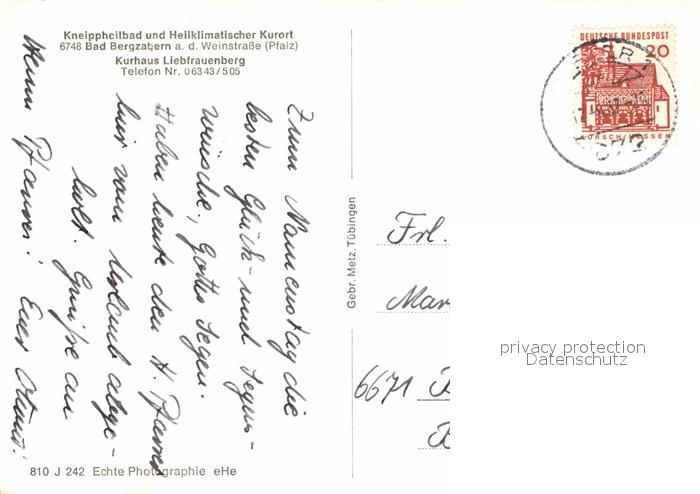 Kneippheilbad und Heilklimatischer Kurort
6748 Bad Bergzabern a. d. Weinstraße (Pfalz)
Kurhaus Liebfrauenberg
Telefon Nr. 06343/505
DEUTSCHE BUNDESPOST
20
LORSCH/HESSEN
Zum Namenstag die
besten Glück- und Segens-
wünsche, Gottes Segen.
Haben heute den H. Pfarrer
hier vom Urlaub abge-
holt. Grüße an
Herrn Pfarrer! Euer
Gebr. Metz, Tübingen
Frl.
Mar
6671 B
B
privacy protection
Datenschutz
810 J 242 Echte Photographie eHe